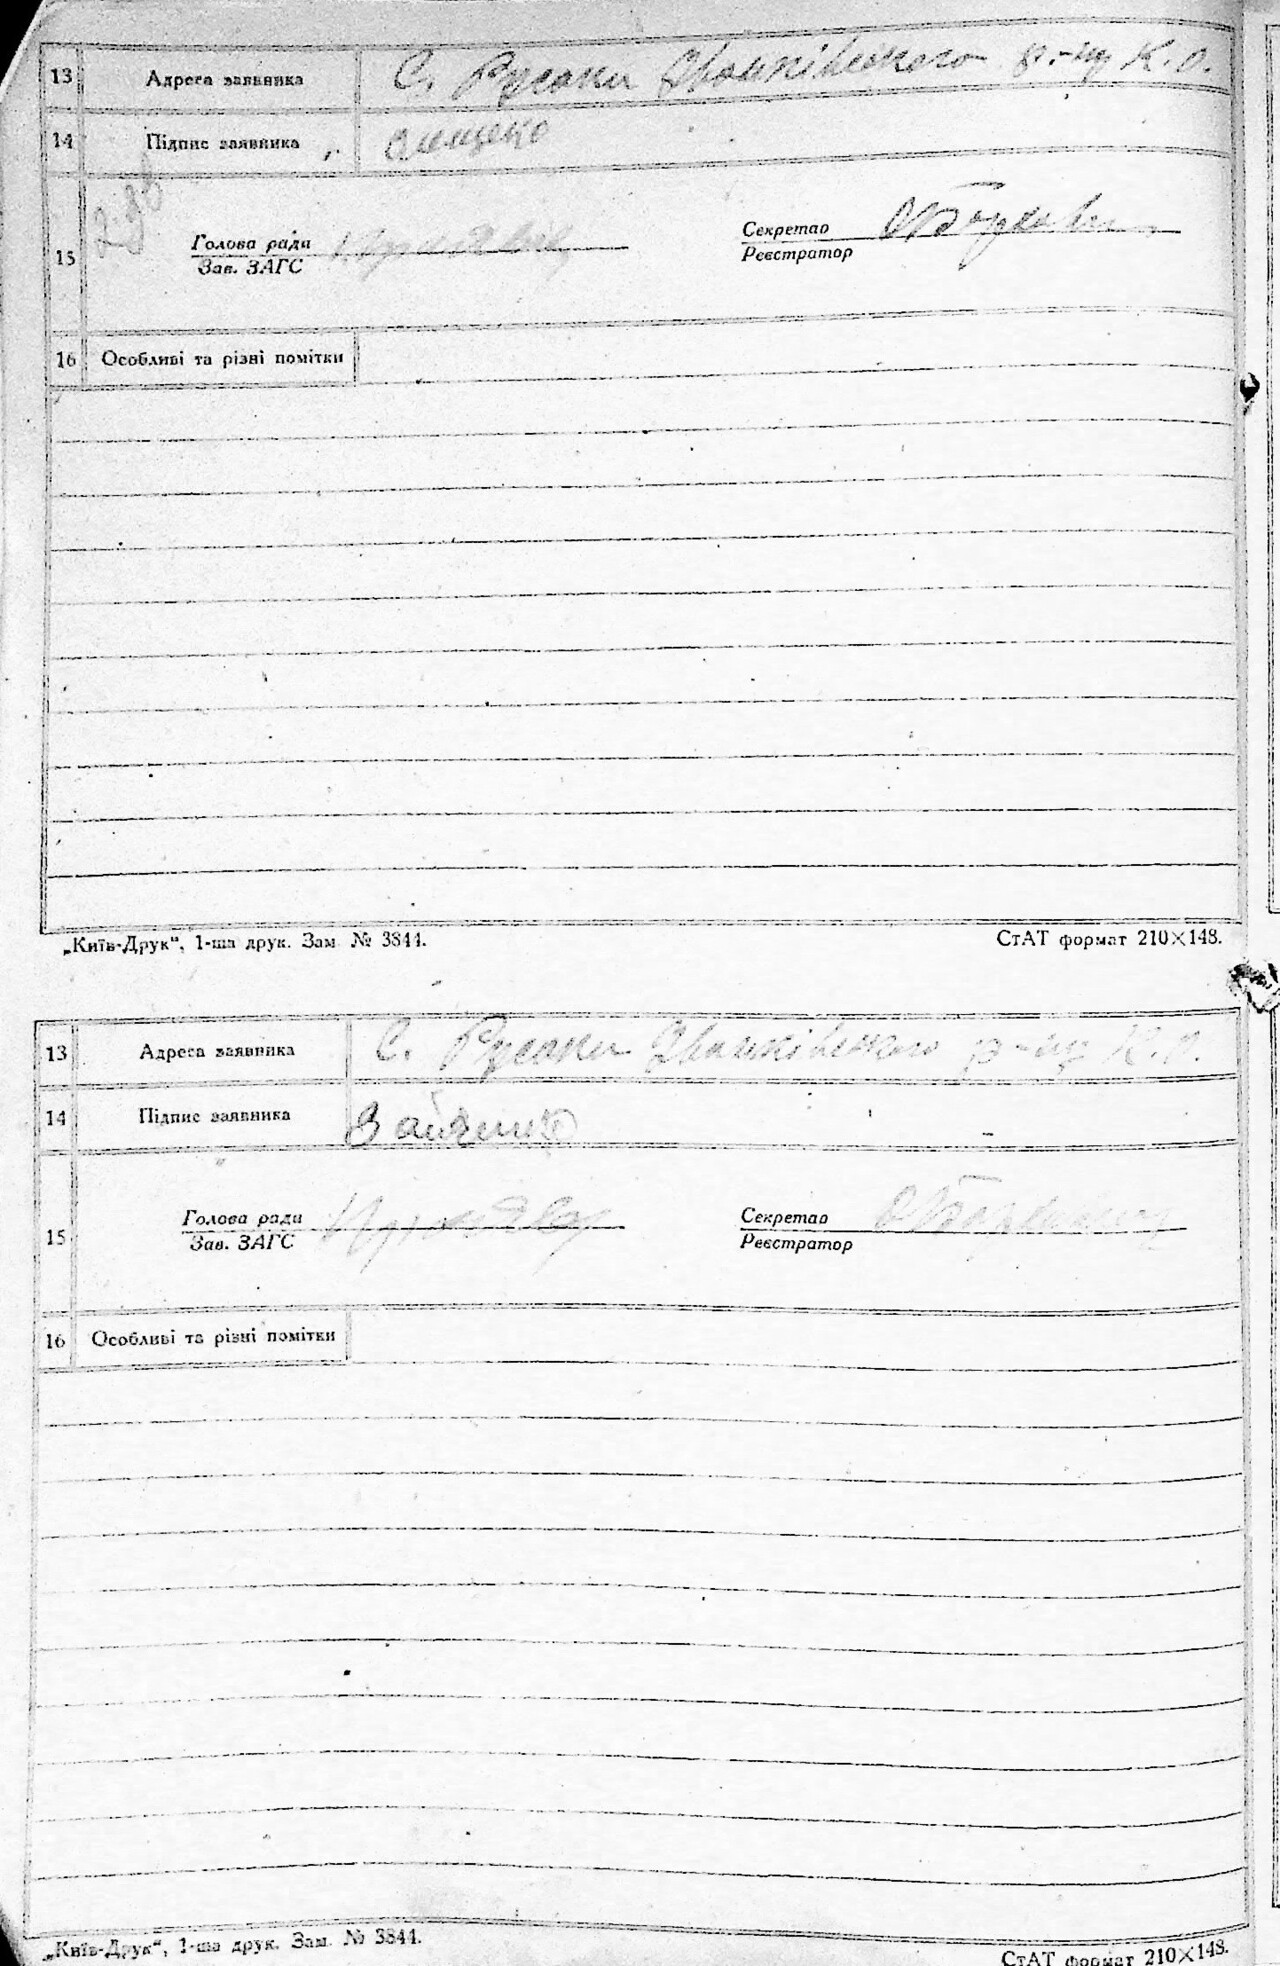 13 Адреса заявника С. Русаки Іванківського р-ну К. О.
14 Підпис заявника
15 Голова ради
Зав. ЗАГС
Секретар
Реєстратор
16 Особливі та різні помітки
„Київ-Друк“, 1-ша друк. Зам. № 3844. СтАТ формат 210×148.
13 Адреса заявника С. Русаки Іванківського р-ну К. О.
14 Підпис заявника Зайченко
15 Голова ради
Зав. ЗАГС
Секретар
Реєстратор
16 Особливі та різні помітки
„Київ-Друк“, 1-ша друк. Зам. № 3844.
СтАТ формат 210×148.